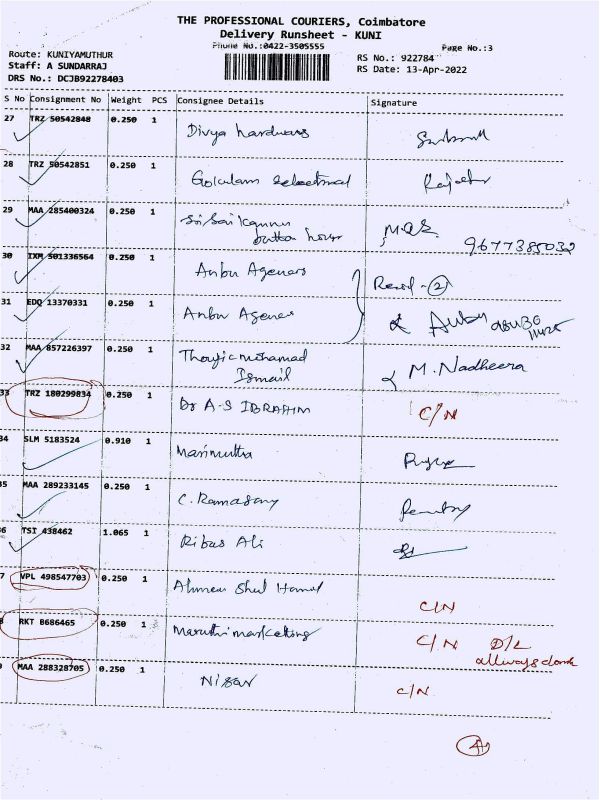 THE PROFESSIONAL COURIERS, Coimbatore
Delivery Runsheet - KUNI
Phone No.:0422-3505555
Page No.:3
Route: KUNIYAMUTHUR
Staff: A SUNDARRAJ
DRS No.: DCJB92278403
RS No.: 922784
RS Date: 13-Apr-2022
S No Consignment No Weight PCS Consignee Details Signature
27 TRZ 50542848 0.250 1 Divya hardwars
28 TRZ 50542851 0.250 1 Gokulam
29 MAA 285400324 0.250 1 M.A.S 9677385032
30 IXM 501336564 0.250 1 Anbu Agencies
31 EDQ 13370331 0.250 1 Anbu Agencies
32 MAA 857226397 0.250 1 Thoufic mohamad
Ismail M. Nadheera
33 TRZ 180299834 0.250 1 Dr A-S IBRAHIM C/N
34 SLM 5183524 0.910 1 Marimuthu
35 MAA 289233145 0.250 1 C. Ramasamy
36 TSI 438462 1.065 1 Ribas Ali
7 VPL 498547703 0.250 1 C/N
RKT B686465 0.250 1 Maruthi marketing C/N D/L
MAA 288328705 0.250 1 Nisar C/N